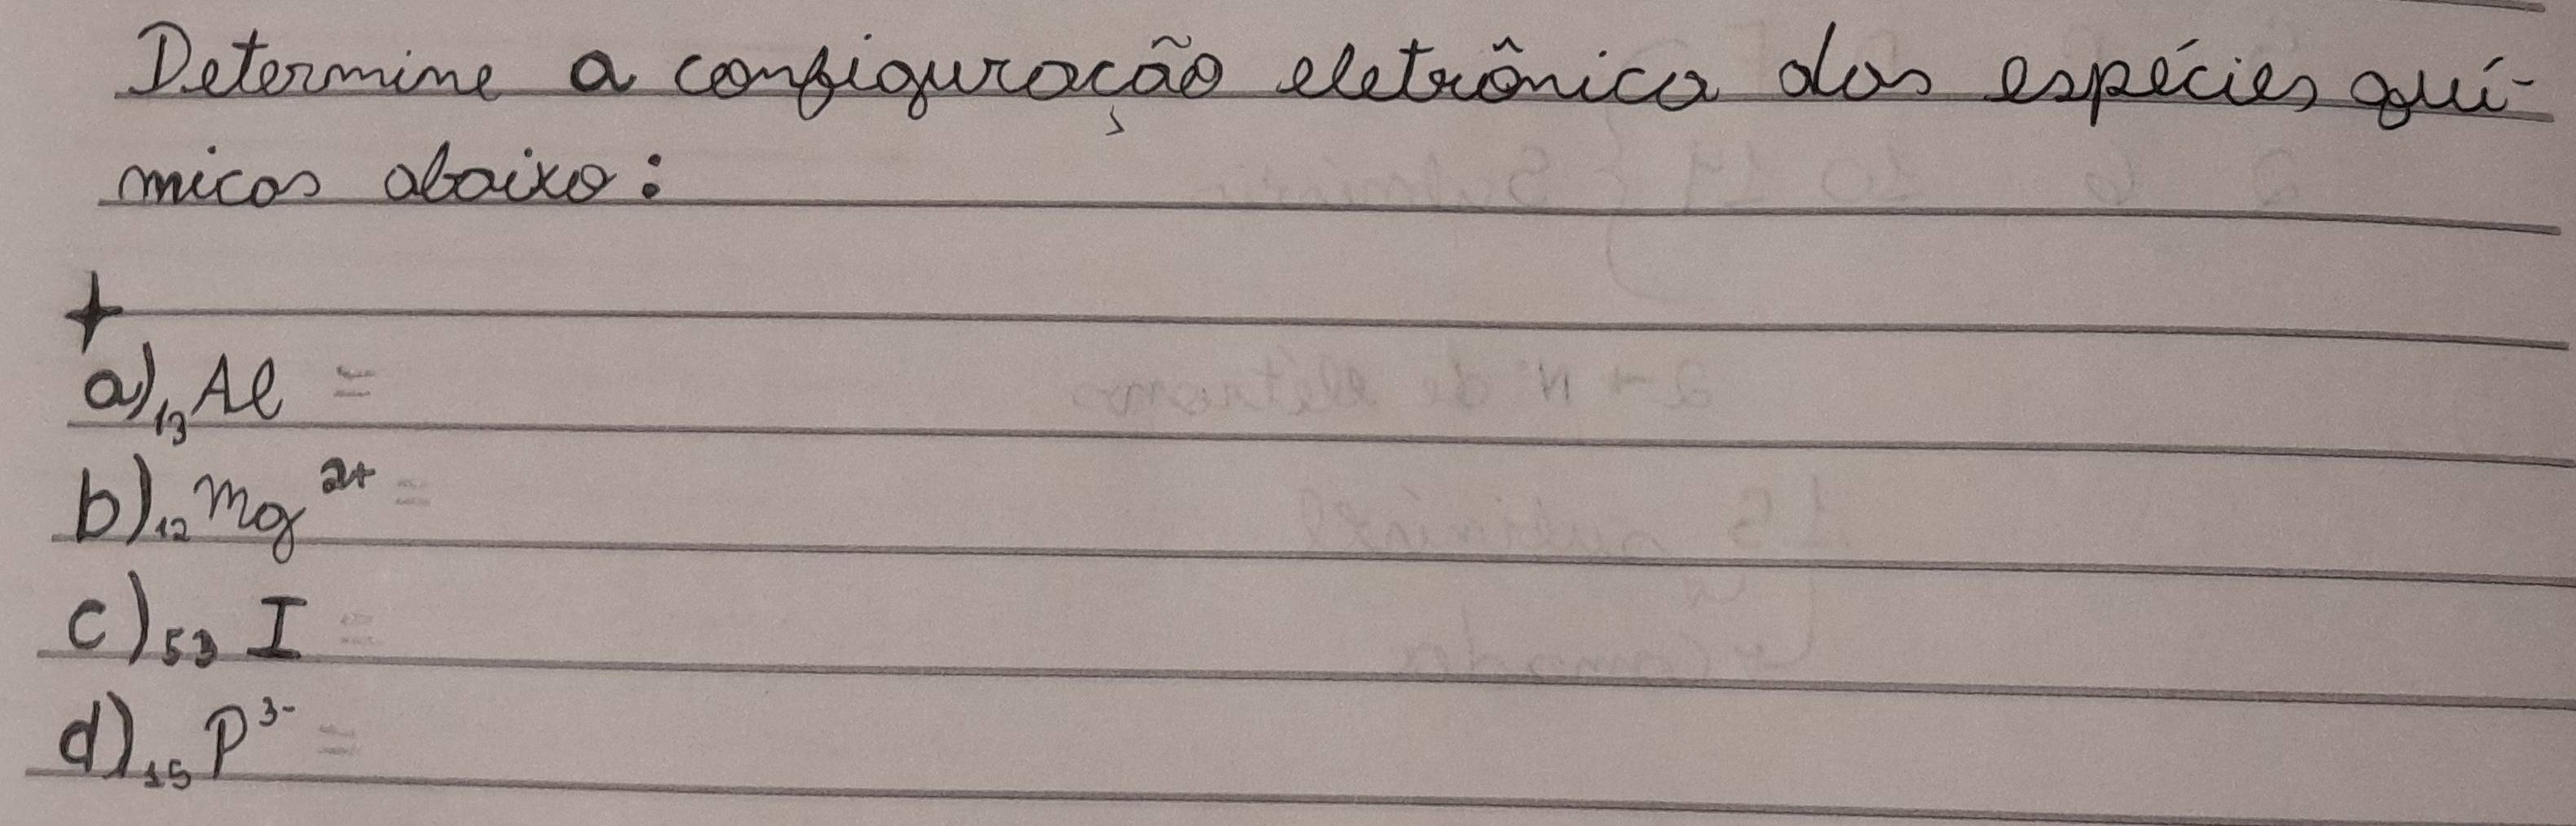 Determine a configuração eletrônica das espécies quí-
micas abaixo:
a) ₁₃Al =
b) ₁₂Mg²⁺ =
c) ₅₃I =
d) ₁₅P³⁻ =